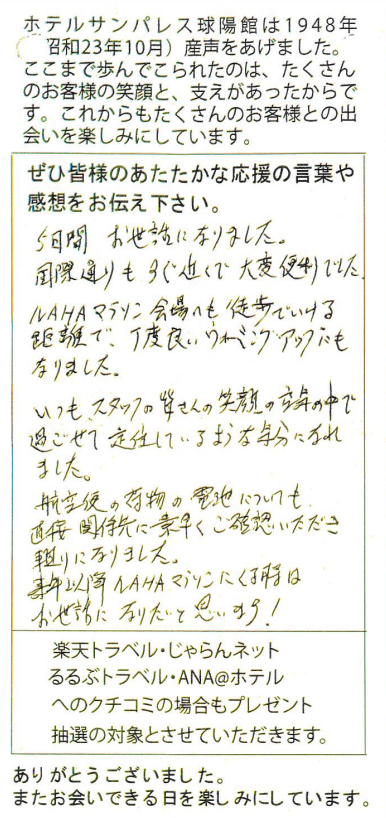 ホテルサンパレス球陽館は1948年
昭和23年10月）産声をあげました。
ここまで歩んでこられたのは、たくさん
のお客様の笑顔と、支えがあったからで
す。これからもたくさんのお客様との出
会いを楽しみにしています。
ぜひ皆様のあたたかな応援の言葉や
感想をお伝え下さい。
5日間 お世話になりました。
国際通りもすぐ近くで大変便利でした
NAHAマラソン会場へも徒歩でいける
距離で、丁度良いウォーミングアップにも
なりました。
いつも、スタッフの皆さんの笑顔の
過ごせて定住しているような気分になれ
ました。
航空便の荷物の電池についても、
直接関係先に素早くご確認いただき
になりました。
来年以降NAHAマラソンにくる時は
お世話になりたいと思います！
楽天トラベル・じゃらんネット
るるぶトラベル・ANA@ホテル
へのクチコミの場合もプレゼント
抽選の対象とさせていただきます。
ありがとうございました。
またお会いできる日を楽しみにしています。